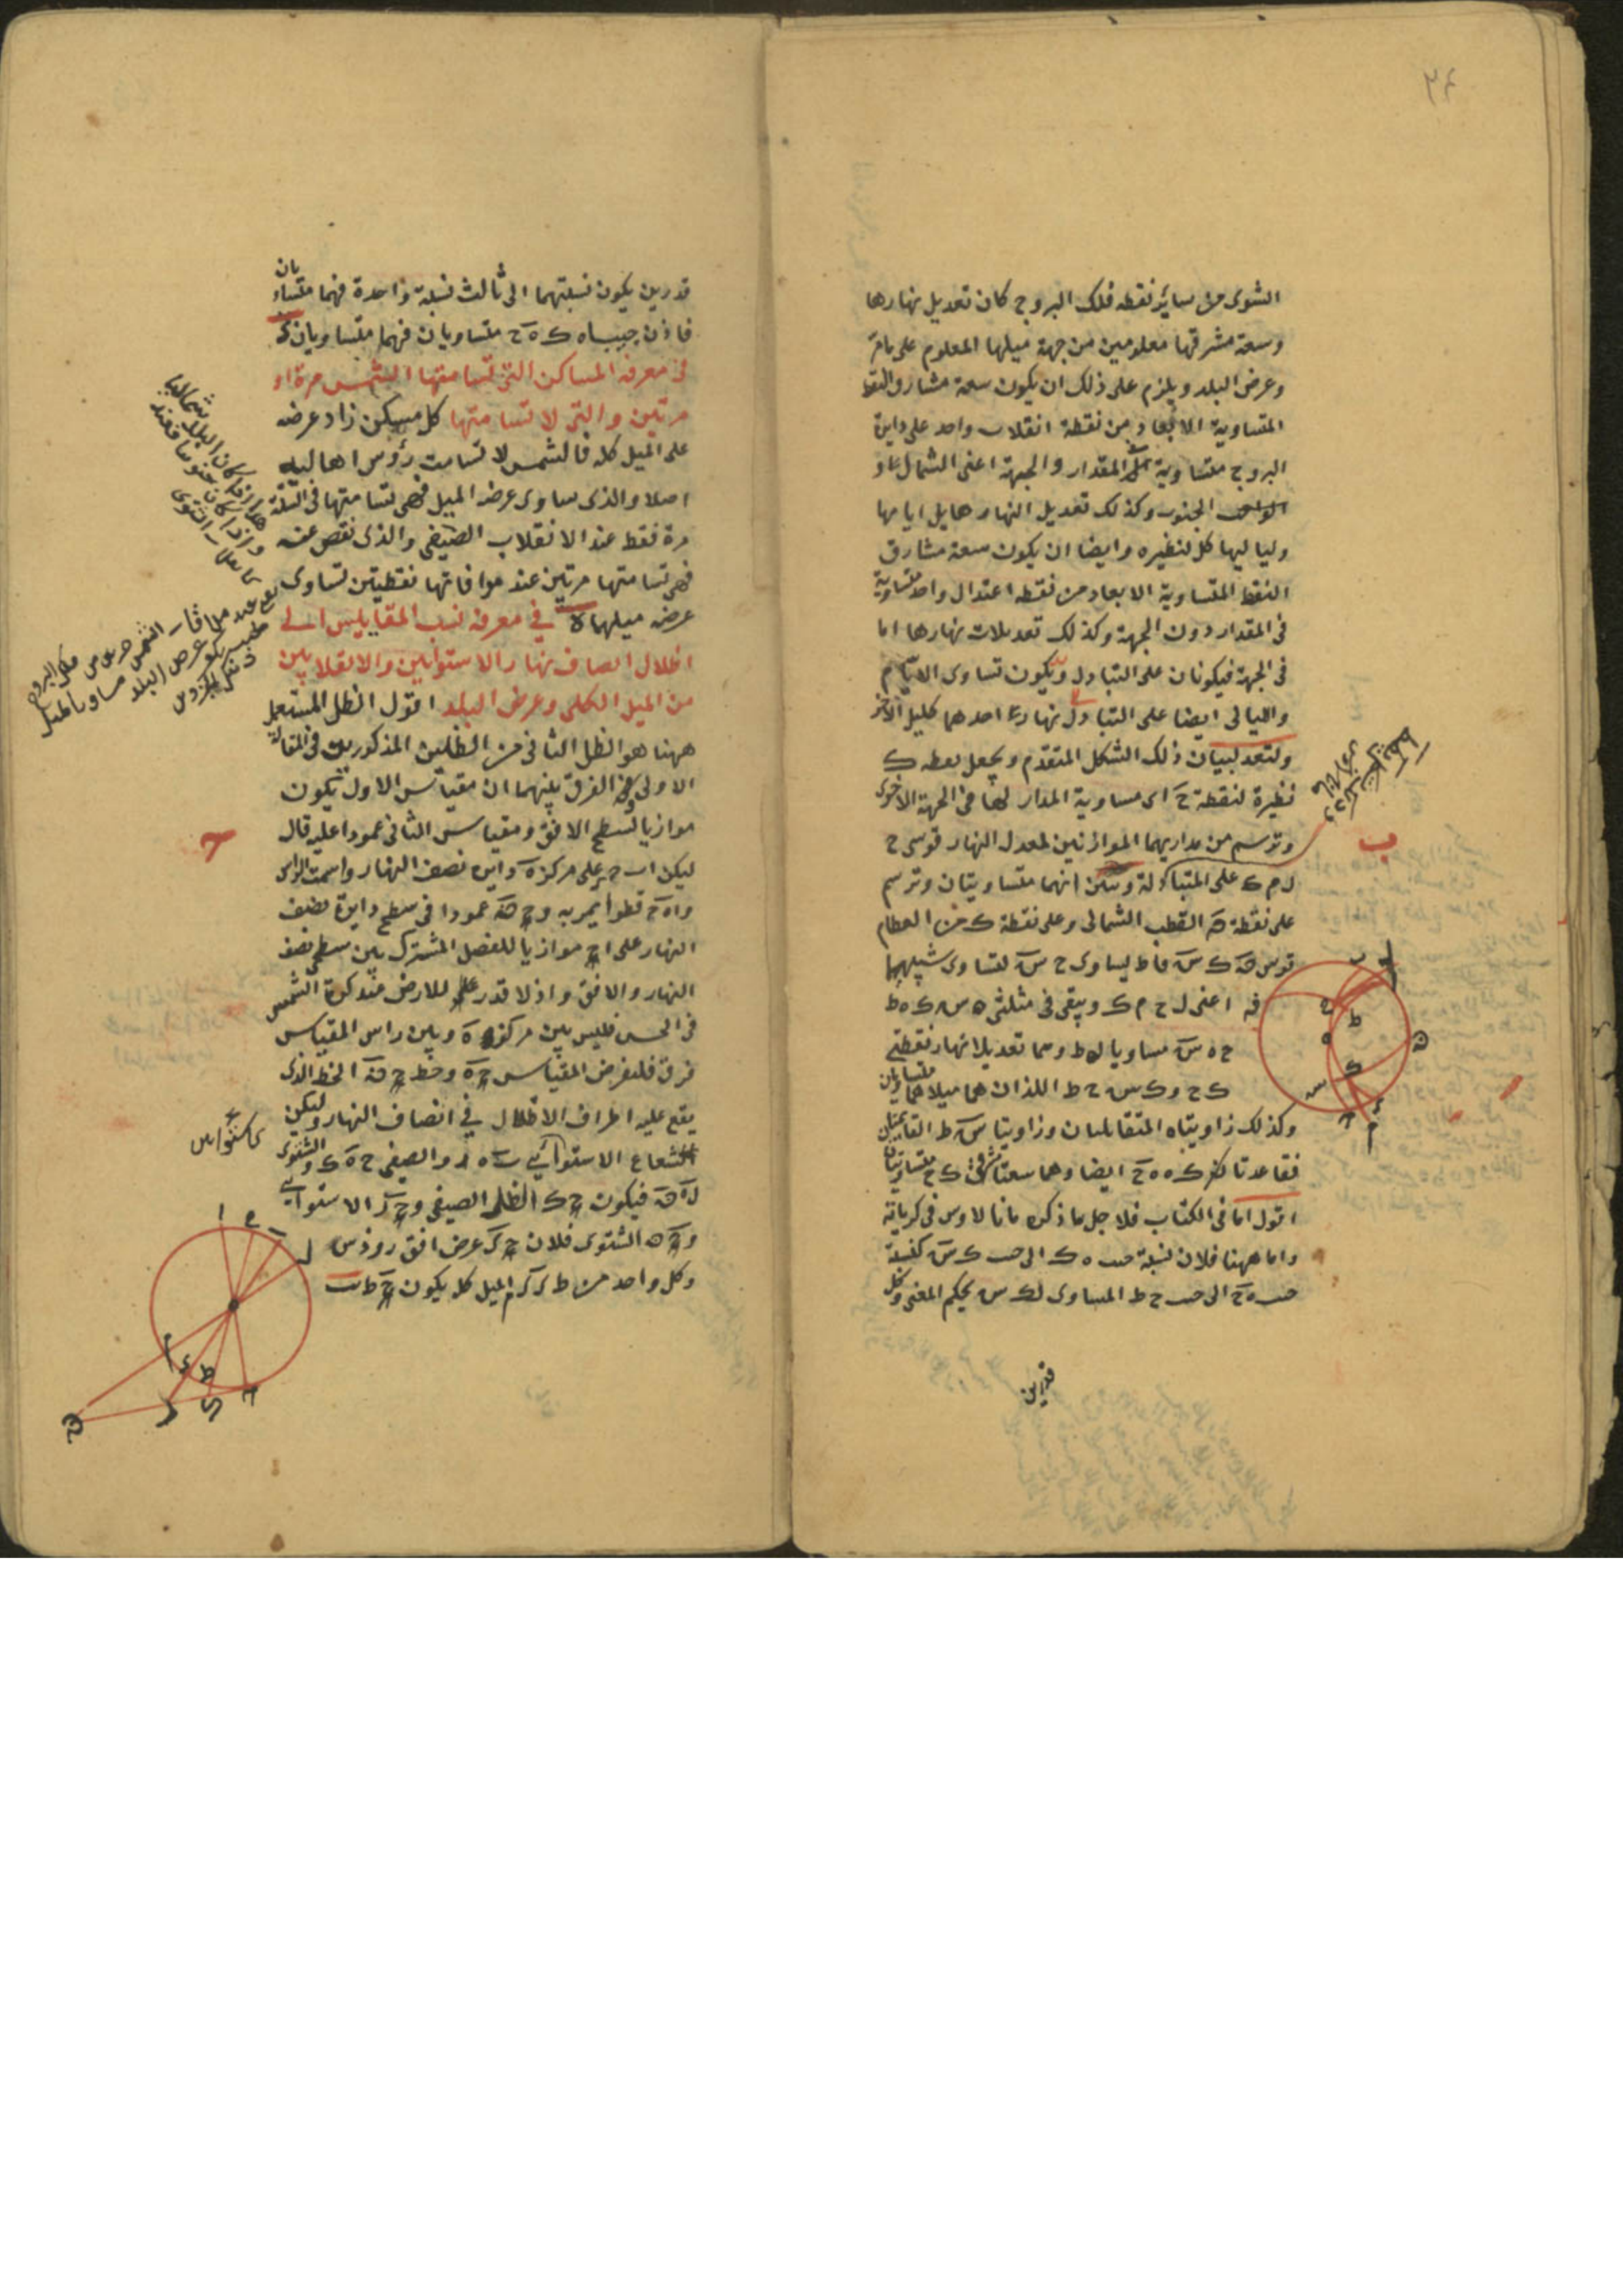 ٢٤
الشتوى من سائر نقطه فلك البروج كان تعديل نهارها
وسعة مشرقها معلومين من جهة ميلها المعلوم على مامر
وعرض البلد ويلزم على ذلك ان يكون سعة مشارق النقط
المتساوية الابعاد من نقطة انقلاب واحد على دايرة
البروج متساوية فى المقدار والجهة اعنى الشمال او
الجنوب وكذلك تعديل النهار وهايل ايامها
ولياليها كل لنظيره وايضا ان يكون سعة مشارق
النقط المتساوية الابعاد من نقطه اعتدال واحد متساوية
فى المقدار دون الجهة وكذلك تعديلات نهارها اما
فى الجهة فيكونان على التبادل ويكون تساوى الايام
والليالى ايضا على التبادل نهار احدهما كليل الاخر
ولنعد لبيان ذلك الشكل المتقدم ونجعل نقطه ك
نظيرة لنقطة ح اى مساوية المدار لها فى الجهة الاخرى
ونرسم من مداريهما الموازيين لمعدل النهار قوسى ح
ل م ك على المتبادلة وتبين انهما متساويتان ونرسم
على نقطة ف القطب الشمالى وعلى نقطة ك من العظام
قوس ف ك س فا ط ليساوى ح س لتساوى شبيهيهما
فه اعنى ل ح م ك ويبقى فى مثلثى ه س ك ه ط
ح ه س مساويا ل ه ط وهما تعديلا نهار نقطتى
ك ح و ك س ح ط اللذان هما ميلاهما متساويان
وكذلك زاويتاه المتقابلتان وزاويتا س ط القائمتان
فقاعدتا ك ه ه ح ايضا وهما سعتا مشرقى ك ح متساويتان
اقول اما فى الكتاب فلاجل ما ذكره مانالاوس فى كرياته
واما ههنا فلان نسبة حب ه ك الى حب ك س كنسبة
حب ه ح الى حب ح ط المساوى ل ك س بحكم المغنى وكل
قدرين
ب
قدرين يكون نسبتهما الى ثالث نسبة واحدة فهما متساويان
فاذن جيباه ك ه ح متساويان فهما متساويان
فى معرفة المساكن التى تسامتها الشمس مرة او
مرتين والتى لا تسامتها كل مسكن زاد عرضه
على الميل كله فالشمس لا تسامت رؤس اهاليه
اصلا والذى ساوى عرضه الميل فهى تسامتها فى السنة
مرة فقط عند الانقلاب الصيفى والذى نقص عنه
فهى تسامتها مرتين عند موافاتها نقطيتين تساوى
عرضه ميلهما ه فى معرفة نسب المقاييس الى
اظلال انصاف نهار الاستوايين والانقلابين
من الميل الكلى وعرض البلد اقول الظل المستعمل
ههنا هو الظل الثانى من الظلين المذكورين فى المقالة
الاولى فى الفرق بينهما ان مقياس الاول يكون
موازيا لسطح الافق ومقياس الثانى عمودا عليه قال
ليكن ا ب ح على مركز ه دايرة نصف النهار واسمت الراس
و ا ه ح قطرا يمر به و ح ف عمودا فى سطح دايرة نصف
النهار على ا ح موازيا للفصل المشترك بين سطحى نصف
النهار والافق واذ لا قدر للارض عند كرة الشمس
فى الحس فليس بين مركز ه وبين راس المقياس
فرق فلنفرض المقياس ح ه وخط ح ف الخط الذى
يقع عليه اطراف الاظلال فى انصاف النهار وليكن
الشعاع الاستوائى ب ه ر والصيفى ح ه ك والشتوى
ل ه ف فيكون ح ك الظل الصيفى و ح ر الاستوائى
و ح ف الشتوى فلان ح ى عرض افق رودس
وكل واحد من ط ى ى م الميل كله يكون ح ط